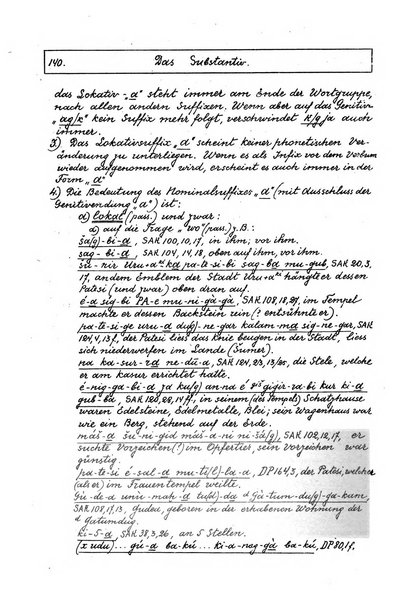 140. Das Substantiv.
das Lokativ-„a“ steht immer am Ende der Wortgruppe,
nach allen andern Suffixen. Wenn aber auf das Genitiv-
„ag/k“ kein Suffix mehr folgt, verschwindet k/g ja auch
immer.
3) Das Lokativsuffix „a“ scheint keiner phonetischen Ver-
änderung zu unterliegen. Wenn es als Infix vor dem Verbum
wieder aufgenommen wird, erscheint es auch immer in der
Form „a“
4) Die Bedeutung des Nominalsuffixes „a“ (mit Ausschluss der
Genitivendung a) ist:
a) lokal (pass.) und zwar:
α) auf die Frage „wo“ (pass.) z.B.:
šà(g)-bi-a, SAK 100,10,17, in ihm; vor ihm.
sag-bi-a, SAK 104,14,18, oben auf ihm, vor ihm.
šu-nir Uru-a ka pa-te-si-bi sag-ba mu-gub, SAK 20,3,
17, andem Emblem der Stadt Uru-a hängt er dessen
Patesi (und zwar) oben dran auf.
é-a sig-bi PA-e mu-ni-gà-gà, SAK 108,18,27, im Tempel
machte er dessen Backstein rein (? entsühnte er).
pa-te-si-ge uru-a du(g)-ne-gar kalam-ma sig-ne-gar, SAK
124,4,13f, der Patesi liess das Knie beugen in der Stadt, liess
sich niederwerfen im Lande (Šumer).
na ka-sur-ra ne-dù-a, SAK 124,23, die Stele, welche
er am kasur errichtet hatte.
é-nig-ga-bi-a za ku(g) an-na é giš gigir-ra-bi kur ki-a
gub-ba, SAK 120,28,14ff, in seinem (des Tempels) Schatzhause
waren Edelsteine, Edelmetalle, Blei; sein Wagenhaus war
wie ein Berg, stehend auf der Erde.
máš-a šu-ni-gid máš-a-ni ni-šá(g), SAK 102,12,17, er
suchte Vorzeichen (?) im Opfertier, sein Vorzeichen war
günstig.
pa-te-si é-sal-a mu-ti(l)-la-a, DP 164,3, der Patesi, welcher
(als er) im Frauentempel weilte.
Gù-de-a unù-mah-a tu(d)-da d Gà-tùm-du(g)-ga-kam,
SAK 108,17,13, Gudea, geboren in der erhabenen Wohnung der
d Gatumdug.
ki-5-a, SAK 38,3,26, an 5 Stellen.
(x udu) ... gu-a ba-kú ... ki-a-nag-gà ba-kú, DP 80,1f,